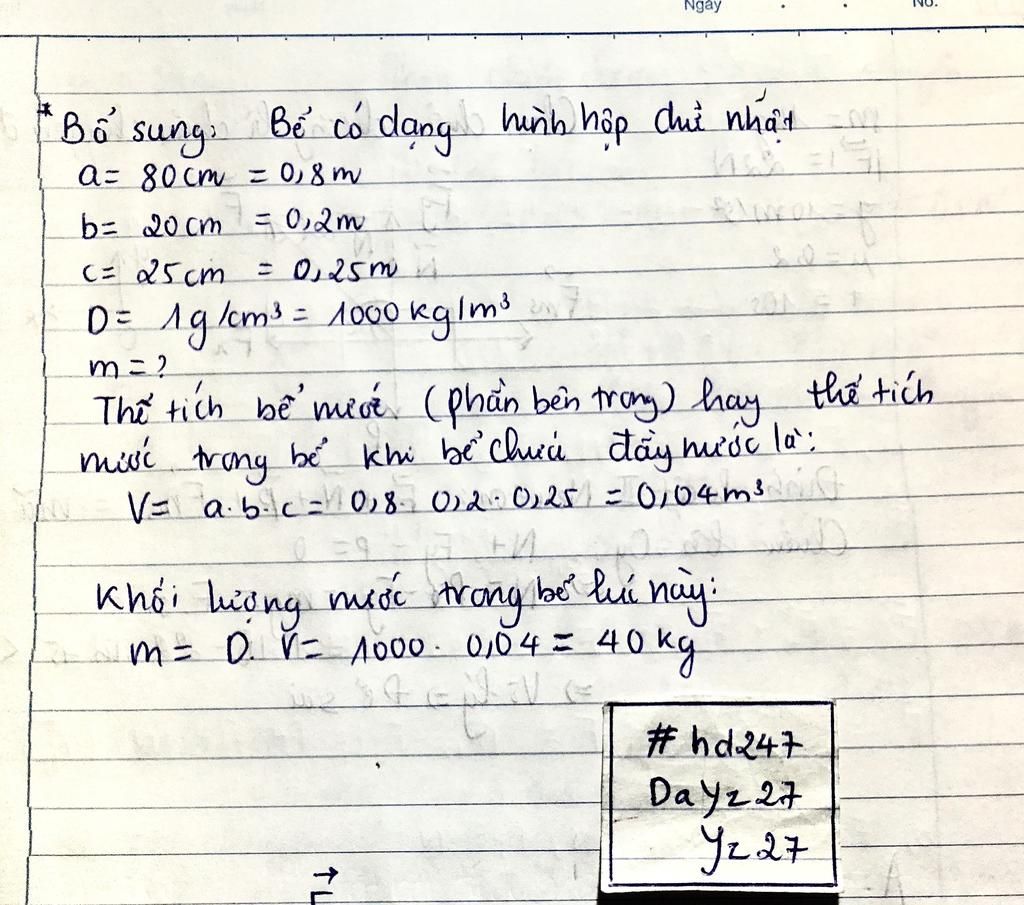 Ngày No.
* Bổ sung: Bể có dạng hình hộp chữ nhật
a = 80cm = 0,8m
b = 20cm = 0,2m
c = 25cm = 0,25m
D = 1g/cm³ = 1000kg/m³
m = ?
Thể tích bể nước (phần bên trong) hay thể tích
nước trong bể khi bể chứa đầy nước là:
V = a.b.c = 0,8. 0,2. 0,25 = 0,04m³
Khối lượng nước trong bể lúc này:
m = D. V = 1000. 0,04 = 40kg
# hd247
DaYz27
Yz27